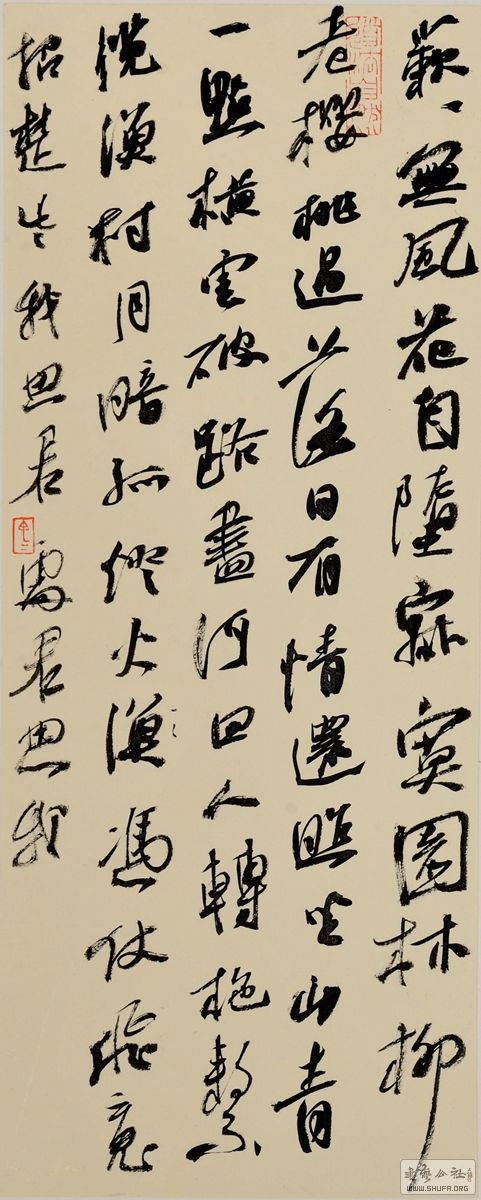 蔌々無風花自墮寂寞園林柳
老櫻桃過落日有情還照坐山青
一點橫雲破路盡河回人轉柂繫
纜漁村月暗孤燈火漁憑仗飛魂
招楚些我思君處君思我
WWW.SHUFA.ORG